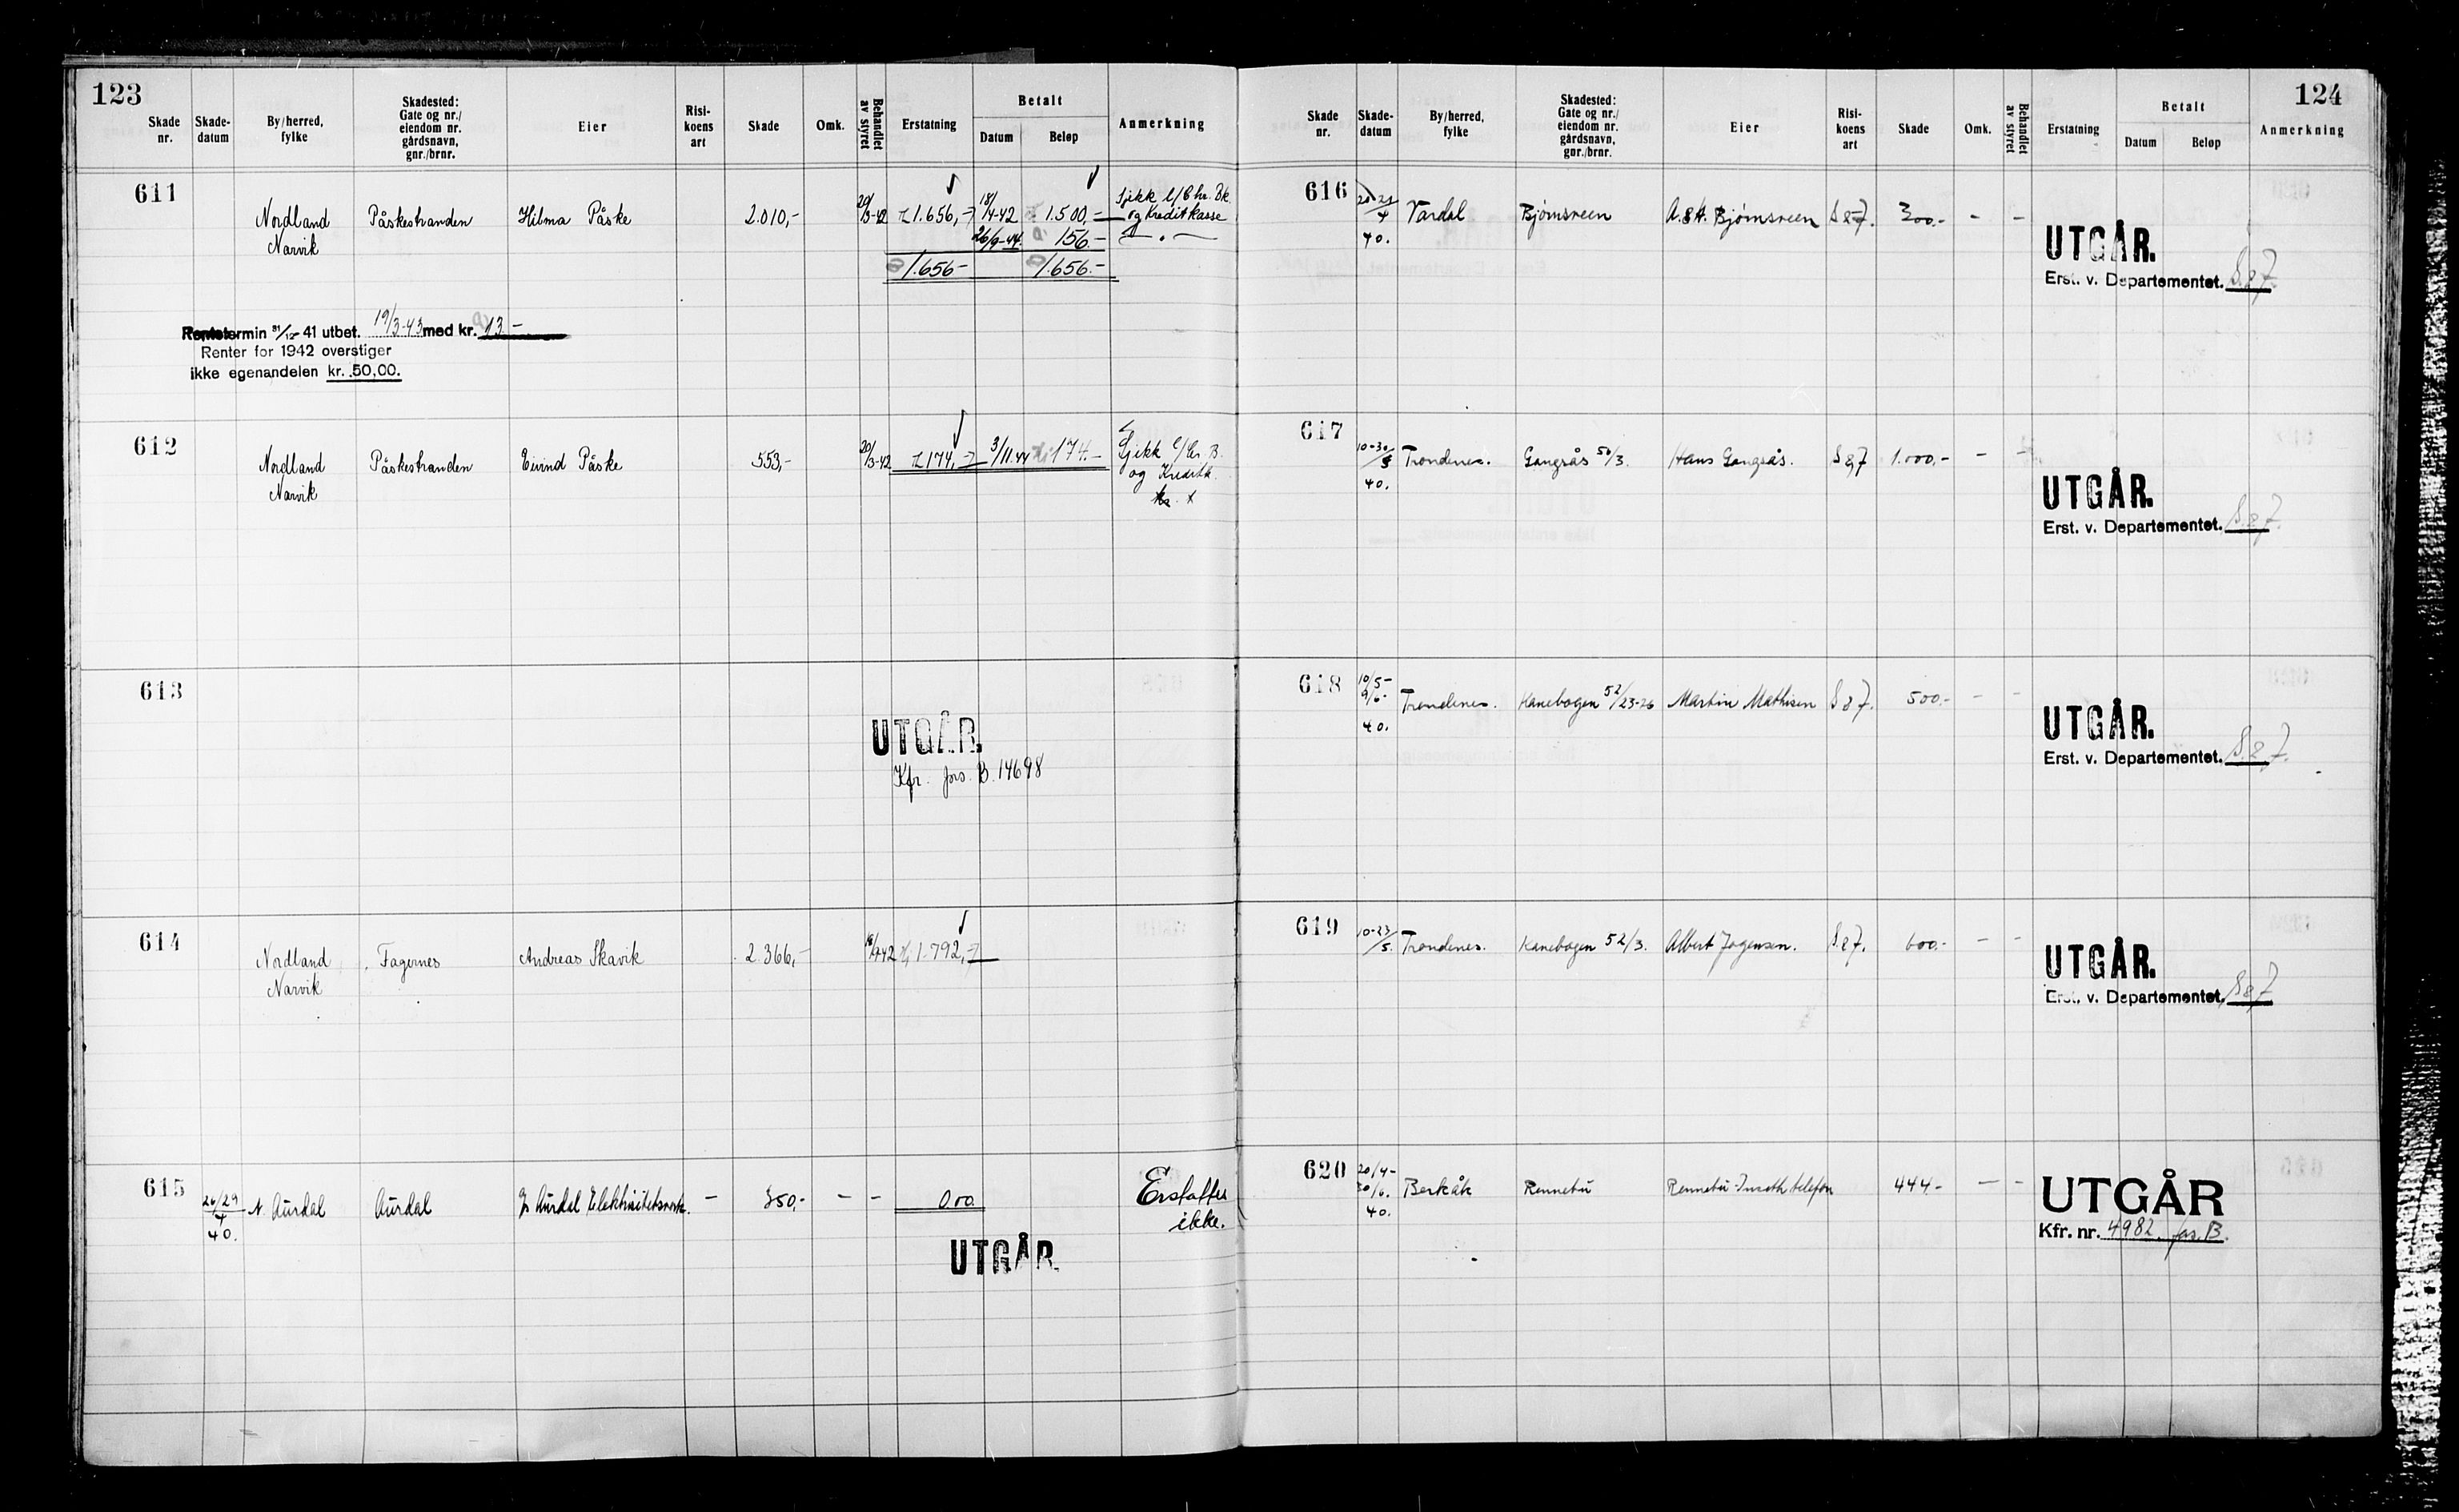 123
Skade nr.
Skade-datum
By/herred, fylke
Skadested: Gate og nr./ eiendom nr. gårdsnavn, gnr./brnr.
Eier
Risi-koens art
Skade
Omk.
Behandlet av styret
Erstatning
Betalt
Datum
Beløp
Anmerkning
611
Nordland Påskestranden Hilma Påske 2.010,- 20/3-42 1.656,- 18/4-42 1.500,-
Narvik
og Kreditkasse
26/9-44 156.-
1.656- 1.656.-
Rentetermin 31/12 41 utbet. 19/3-43 med kr. 13-
Renter for 1942 overstiger
ikke egenandelen kr. 50,00.
612
Nordland Påskestranden Eivind Påske 553,- 20/3-42 174,- 3/11.44 174.-
Narvik
og
613
UTGÅR.
Kfr. jrs. B. 14698
614
Nordland Fagernes Andreas Skavik 2.366,- 1.792,-
Narvik
615
26/29 N. Aurdal Aurdal Aurdal Elektrisitetsverk. - 350,- - - 0.00 Erstattes
4
40.
ikke.
UTGÅR.
124
Skade nr.
Skade-datum
By/herred, fylke
Skadested: Gate og nr./ eiendom nr. gårdsnavn, gnr./brnr.
Eier
Risi-koens art
Skade
Omk.
Behandlet av styret
Erstatning
Betalt
Datum
Beløp
Anmerkning
616
Vardal Bjørnsveen A. & H. Bjørnsveen S 87. 300.- - -
40.
UTGÅR.
Erst. v. Departementet. S. 87
617
10-30/5 Trondenes. Gangsås 50/3. Hans Gangsås. S 87 1.000,- - -
40.
UTGÅR.
Erst. v. Departementet. S. 87.
618
10/5-
9/6- Trondenes. Kanebogen 52/23-26 Martin Mathisen S 87. 500.- - -
40.
UTGÅR.
Erst. v. Departementet. S. 87.
619
10-23/5. Trondenes. Kanebogen 52/3. Albert Jørgensen. S. 87. 600.- - -
UTGÅR.
Erst. v. Departementet. S 87
620
20/4-
30/6. Berkåk Rennebu Rennebu-Innseth telefon 444.- - -
40.
UTGÅR
Kfr. nr. 4982 jrs. B.